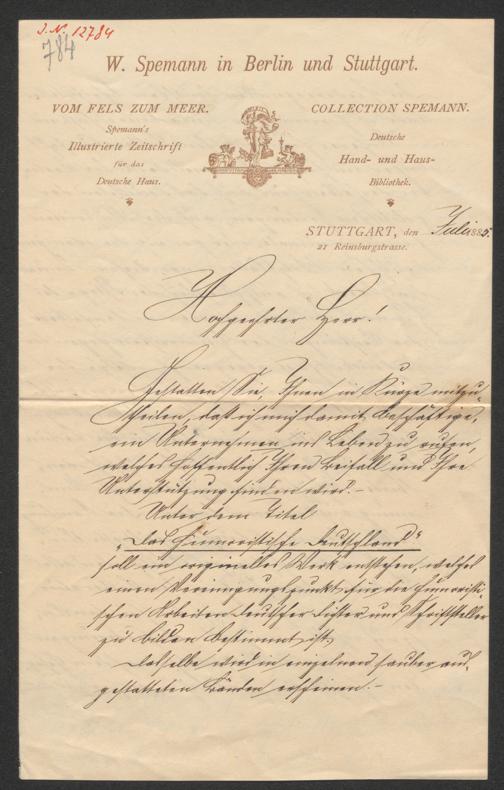 J. N. 12784
784
W. Spemann in Berlin und Stuttgart.
VOM FELS ZUM MEER.
Spemann's
Illustrierte Zeitschrift
für das
Deutsche Haus.
COLLECTION SPEMANN.
Deutsche
Hand- und Haus-
Bibliothek.
STUTTGART, den Juli 1885.
21 Reinsburgstrasse.
Hochgeehrter Herr!
Gestatten Sie, Ihnen in Kürze mitzu-
theilen, daß ich mich damit beschäftige,
ein Unternehmen ins Leben zu rufen,
welches hoffentlich Ihren Beifall und Ihre
Unterstützung finden wird.–
Unter dem Titel
„Das humoristische Deutschland“
soll ein originelles Werk entstehen, welches
einen Vereinigungspunkt für die humoristi-
schen Arbeiten deutscher Dichter und Schriftsteller
zu bilden bestimmt ist.
Dasselbe wird in einzelnen sauber aus-
gestatteten Bänden erscheinen.–